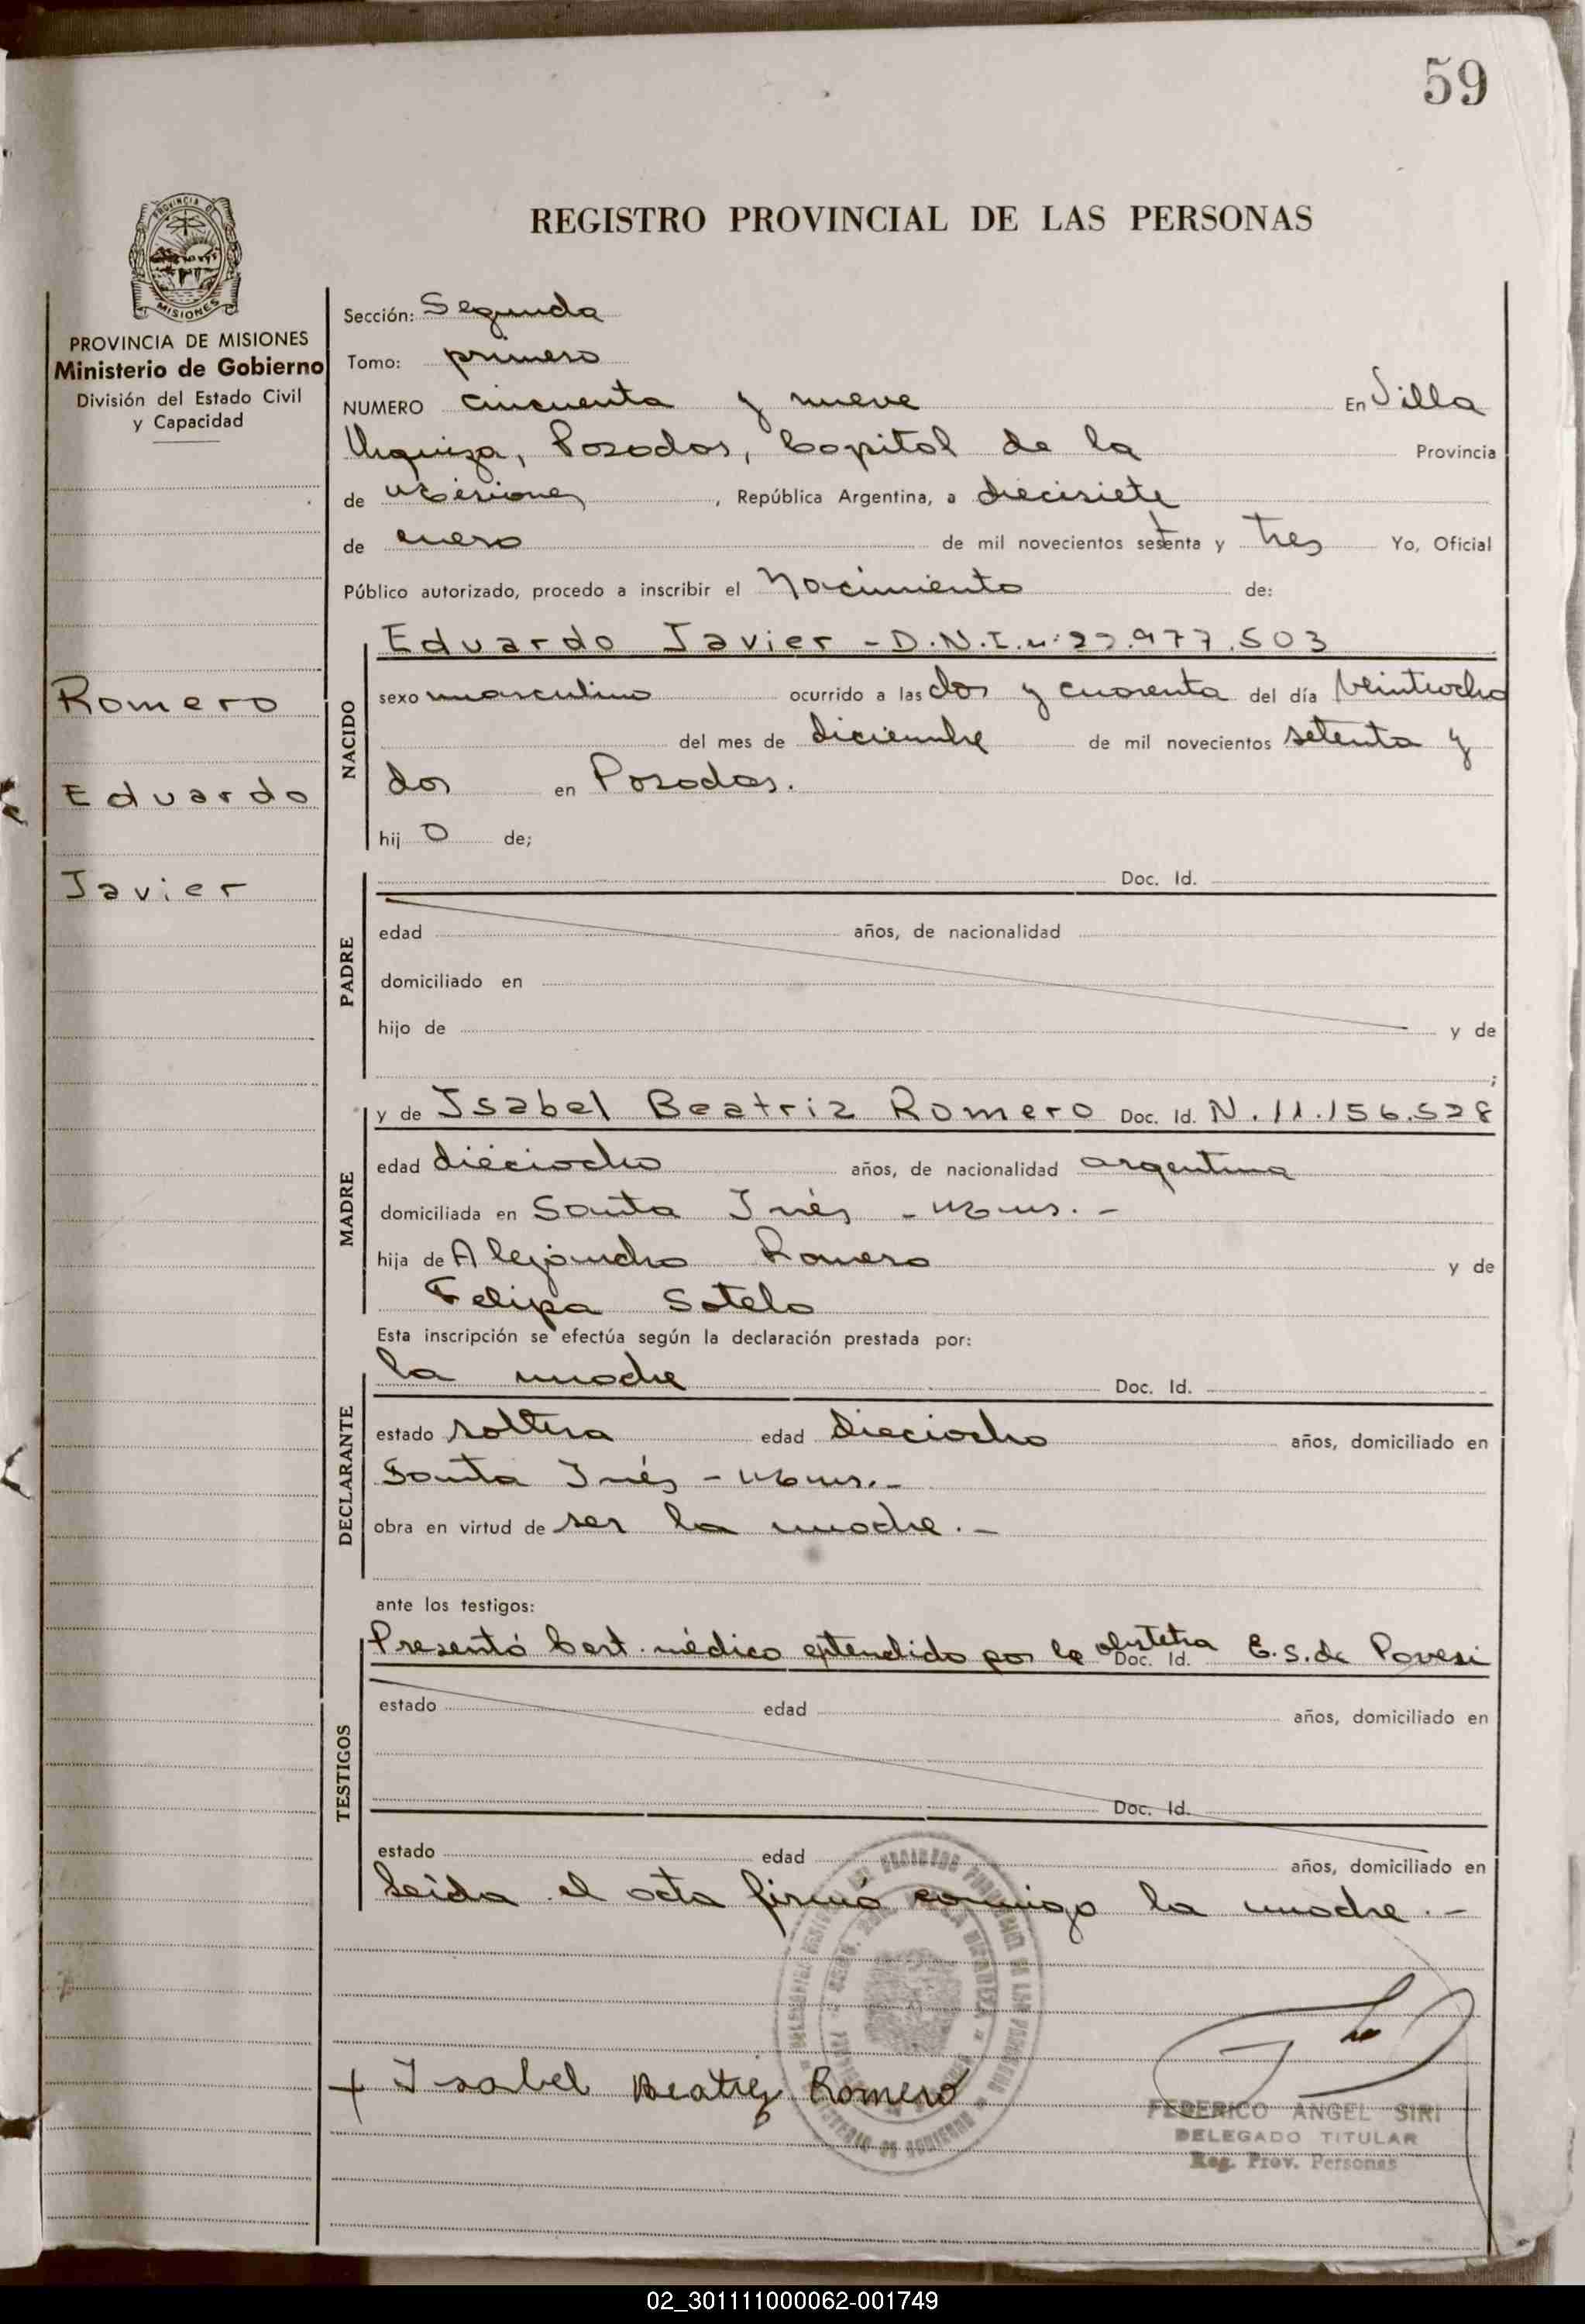 59
PROVINCIA DE
MISIONES
REGISTRO PROVINCIAL DE LAS PERSONAS
PROVINCIA DE MISIONES
Ministerio de Gobierno
División del Estado Civil
y Capacidad
Romero
Eduardo
Javier
Sección: Segunda
Tomo: primero
NUMERO cincuenta y nueve En Villa
Urquiza, Posadas, Capital de la Provincia
de Misiones, República Argentina, a diecisiete
de enero de mil novecientos setenta y tres Yo, Oficial
Público autorizado, procedo a inscribir el Nacimiento de:
NACIDO
Eduardo Javier - D.N.I. nº 22.977.503
sexo masculino ocurrido a las dos y cuarenta del día veintiocho
del mes de diciembre de mil novecientos setenta y
dos en Posadas.
hij o de;
PADRE
Doc. Id.
edad años, de nacionalidad
domiciliado en
hijo de y de
;
MADRE
y de Isabel Beatriz Romero Doc. Id. N. 11.156.528
edad dieciocho años, de nacionalidad argentina
domiciliada en Santa Inés - Mnes. -
hija de Alejandro Romero y de
Felipa Sotelo
Esta inscripción se efectúa según la declaración prestada por:
DECLARANTE
la madre Doc. Id.
estado soltera edad dieciocho años, domiciliado en
Santa Inés - Mnes. -
obra en virtud de ser la madre. -
ante los testigos:
TESTIGOS
Presentó Cert. médico extendido por la obstetra Doc. Id. E. S. de Povesi
estado edad años, domiciliado en
Doc. Id.
estado edad años, domiciliado en
Leída el acta firmó conmigo la madre. -
+ Isabel Beatriz Romero
FEDERICO ANGEL SIRI
DELEGADO TITULAR
Reg. Prov. Personas
02_301111000062-001749